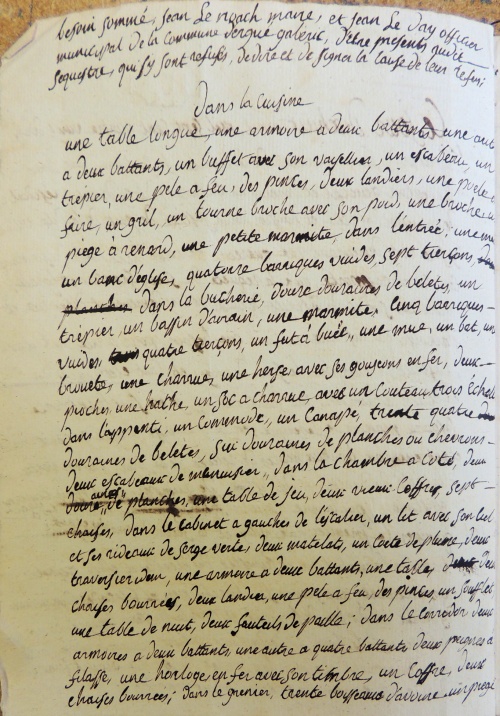 besoin sommé, jean Le noach maire, et jean Le Day officier
municipal de la commune dergue galeric, d'etre presents audit
sequestre, qui s'y sont refusés, de dire et de signer la cause de leur refus;
dans la cuisine
une table longue, une armoire a deux battants une aut
a deux battants, un buffet avec son vaisellier, un escabeau un
trepier, une pele a feu, des pinces, deux landiers, une poele a
frire, un gril, un tourne broche avec son poid, une broche
piege a renard, une petite marmite dans l'entrée, une
un banc d'église, quatorze barriques vuides, sept tierçons,
planches dans la bucherie, douze douzaines de beletes, un
trépier, un bassin d'airain, une marmite, cinq barriques
vuides, quatre tierçons, un fut a buée, une mue, un bat, un
brouete, une charrue, une herse avec ses goujeons en fer, deux
pioches, une hache, un soc a charrue, avec un couteau trois echell
dans l'appenti, un commode, un canape, trente quatre
douzaines de beletes, six douzaines de planches ou chevrons
deux escabeaux de menuisier, dans la chambre a coté, deux
de planches, une table de jeu, deux vieux coffres, sept
chaises, dans le cabinet a gauches de l'escalier, un lit avec son ciel
et ses rideaux de serge verte, deux matelats, un coete de plume, deux
traversier idem, une armoire a deux battants, une table, deux
chaises bourrées, deux landiers, une pele a feu, des pinces un soufflet
une table de nuit, deux fauteuils de paille; dans le corredor deux
armoires a deux battants une autre a quatre battants, deux peignes a
filasse, une horloge en fer avec son timbre, un coffre, deux
chaises bourrees; dans le grenier, trente boisseaux d'avoine un piege